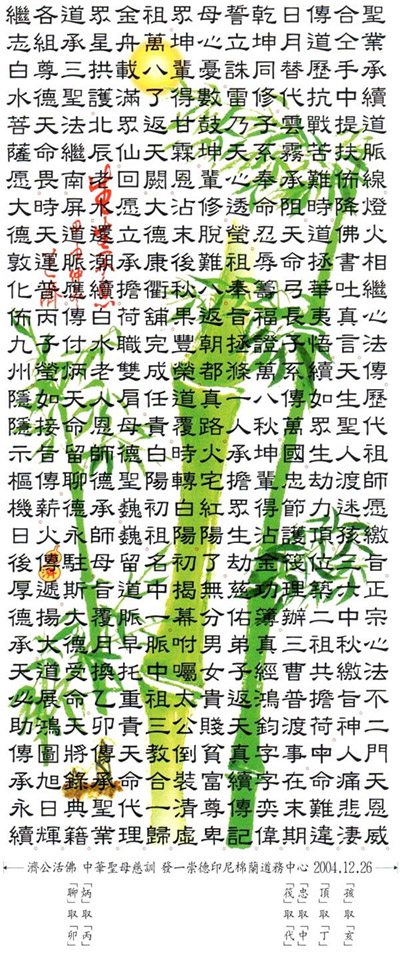 聖業承續道脈線燈佛火相繼心法傳歷代祖師愿繳言正宗心法不二門天恩威
合仝手中提扶佈降拯書吐真言天生人下迷孩位三中秋繳旨神人痛悲淒
傳道歷抗戰苦難時道昌拯華夷悟續如眾生劫力頂築二祖共擔荷中命難違
日月替代雲霧承阻天命弓長子系傳萬國忠節護筏理辦三曹普渡事在末期
乾坤同修子系奉命忍辱籌福證萬八秋坤輩得沾金功簿真經鴻鈞字字奕偉
誓立誅雷乃天心透瑩祖奉旨拯滌一人承擔眾生劫茲佑弟子返天真續傳記
母心憂數鼓坤輩修脫難八返朝都真路火宅紅陽了無分男女貴賤貧富尊卑
眾坤輩得甘霖恩沾末後秋果豐榮道覆時轉白陽初揭幕咐囑太公倒裝清虛
祖萬八了返天闕大康衢舖完成任責白陽初祖名中早脈中祖三教合一歸
金舟載滿眾仙回愿立承擔荷職雙肩母德聖巍巍留道脈年托重責天命代理
眾星拱護北辰老還源續白水老人恩師德承師母音覆月換乙卯將傳承聖業
道承三聖法繼南屏道脈應傳付炳天命留聊德永駐斯天德受命錄典籍
各組尊德天命畏時天運普丙子瑩如接昔傳薪火傳遞揚大道天展鴻圖旭日輝
繼志白水菩薩愿大德敦化佈九州隱隱示樞機日後厚德承天心助傳承永續
濟公活佛 中華聖母慈訓 發一崇德印尼棉蘭道務中心 2004.12.26
「孩」取「亥」
「頂」取「丁」
「忠」取「中」
「筏」取「代」
「炳」取「丙」
「聊」取「卯」